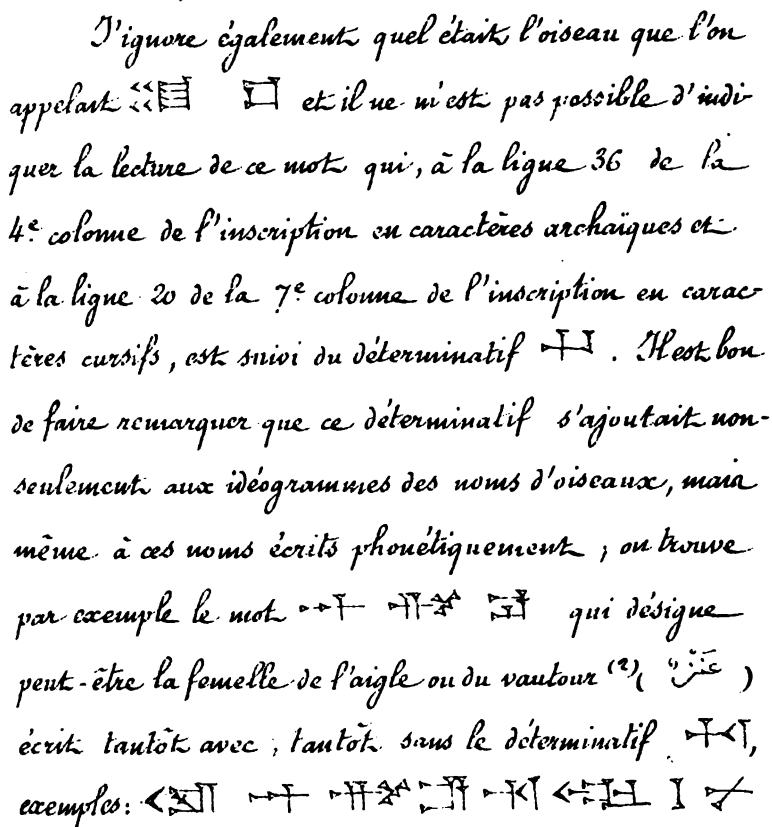 J'ignore également quel était l'oiseau que l'on
appelait et il ne m'est pas possible d'indi-
quer la lecture de ce mot qui, à la ligne 36 de la
4e colonne de l'inscription en caractères archaïques et
à la ligne 20 de la 7e colonne de l'inscription en carac-
tères cursifs, est suivi du déterminatif . Il est bon
de faire remarquer que ce déterminatif s'ajoutait non-
seulement aux idéogrammes des noms d'oiseaux, mais
même à ces noms écrits phonétiquement ; on trouve
par exemple le mot qui désigne
peut-être la femelle de l'aigle ou du vautour (2) ( عَنْزٌ )
écrit tantôt avec, tantôt sans le déterminatif ,
exemples: